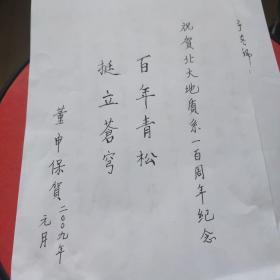 祝賀北大地质系一百周年纪念
百年青松
挺立蒼穹
董申保賀二〇〇九年
元月